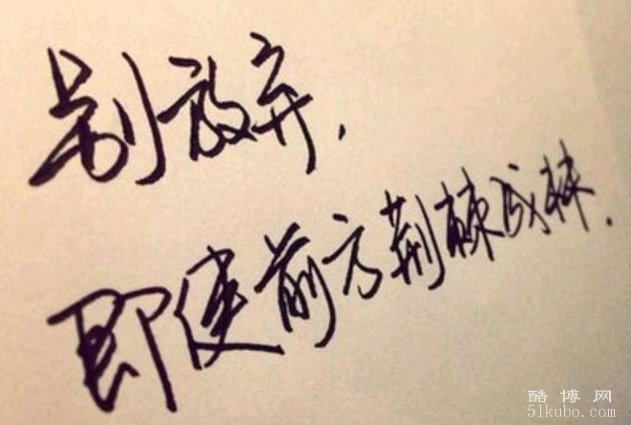 别放弃.
即使前方荆棘成林.
酷博网
51kubo.com